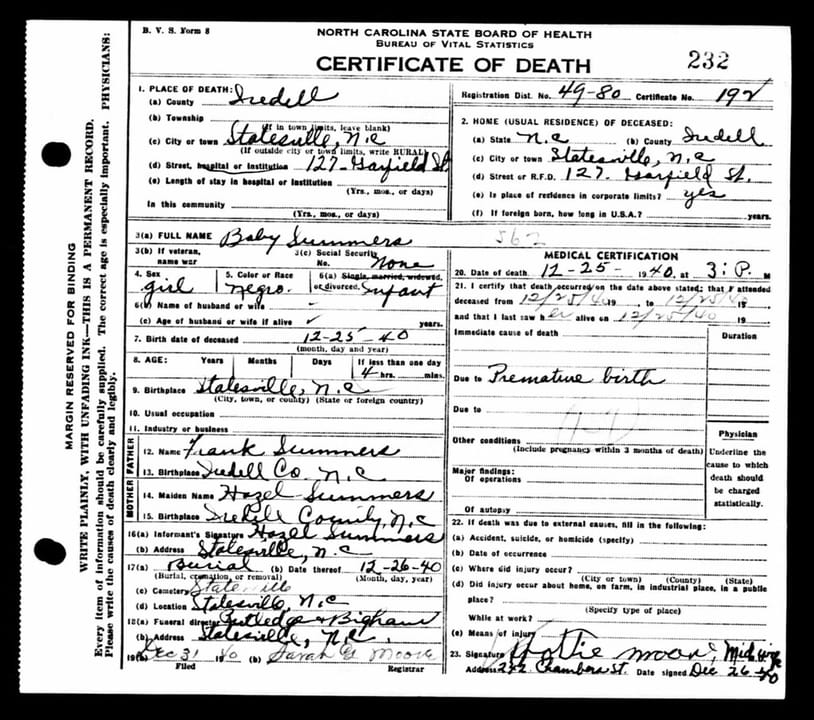 B. V. S. Form 8
NORTH CAROLINA STATE BOARD OF HEALTH
BUREAU OF VITAL STATISTICS
CERTIFICATE OF DEATH
232
MARGIN RESERVED FOR BINDING
WRITE PLAINLY, WITH UNFADING INK—THIS IS A PERMANENT RECORD.
Every item of information should be carefully supplied. The correct age is especially important. PHYSICIANS:
Please write the causes of death clearly and legibly.
Registration Dist. No. 49-80 Certificate No. 192
1. PLACE OF DEATH:
(a) County Iredell
(b) Township
(If in town limits, leave blank)
(c) City or town Statesville, N.C
(If outside city or town limits, write RURAL)
(d) Street, hospital or institution 127. Garfield St.
(e) Length of stay in hospital or institution
(Yrs., mos., or days)
In this community
(Yrs., mos., or days)
2. HOME (USUAL RESIDENCE) OF DECEASED:
(a) State N.C (b) County Iredell
(c) City or town Statesville, N.C
(d) Street or R.F.D. 127. Garfield St.
(e) Is place of residence in corporate limits? yes
(f) If foreign born, how long in U.S.A.? years.
3(a) FULL NAME Baby Summers
562
3(b) If veteran, name war
3(c) Social Security No. None
4. Sex girl
5. Color or Race Negro.
6(a) Single, married, widowed, or divorced. Infant
6(b) Name of husband or wife –
(c) Age of husband or wife if alive ✓ years.
7. Birth date of deceased 12-25-40
(month, day and year)
8. AGE: Years Months Days If less than one day
4 hrs. mins.
9. Birthplace Statesville, N.C
(City, town, or county) (State or foreign country)
10. Usual occupation
11. Industry or business
FATHER
12. Name Frank Summers
13. Birthplace Iredell Co. N.C
MOTHER
14. Maiden Name Hazel Summers
15. Birthplace Iredell County, N.C
16(a) Informant's Signature Hazel Summers
(b) Address Statesville, N.C
17(a) Burial (b) Date thereof 12-26-40
(Burial, cremation, or removal) (Month, day, year)
(c) Cemetery Statesville
(d) Location Statesville, N.C
18(a) Funeral director Rutledge & Bigham
(b) Address Statesville, N.C.
19(a) Dec 31 1940 (b) Sarah G Moore
Filed Registrar
MEDICAL CERTIFICATION
20. Date of death 12-25- 1940, at 3: P. M
21. I certify that death occurred on the date above stated; that I attended
deceased from 12/25/40 19 , to 12/25/40 19
and that I last saw her alive on 12/25/40 19
Immediate cause of death
Duration
Due to Premature birth
Due to
Other conditions
(Include pregnancy within 3 months of death)
Major findings:
Of operations
Of autopsy
Physician
Underline the
cause to which
death should
be charged
statistically.
22. If death was due to external causes, fill in the following:
(a) Accident, suicide, or homicide (specify)
(b) Date of occurrence
(c) Where did injury occur?
(City or town) (County) (State)
(d) Did injury occur about home, on farm, in industrial place, in a public
place?
(Specify type of place)
While at work?
(e) Means of injury
23. Signature Hattie Moore, Midwife
Address 242 Chambers St. Date signed Dec 26-40